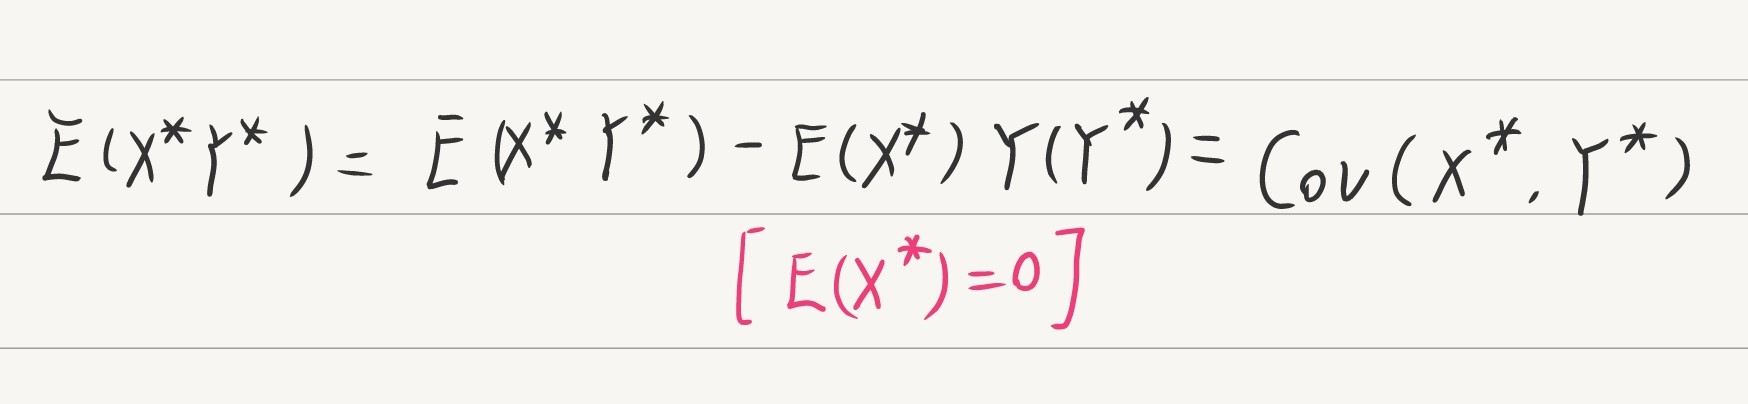 E(X*Y*) = E(X* Y*) - E(X*) Y(Y*) = Cov(X*, Y*)
[E(X*)=0]